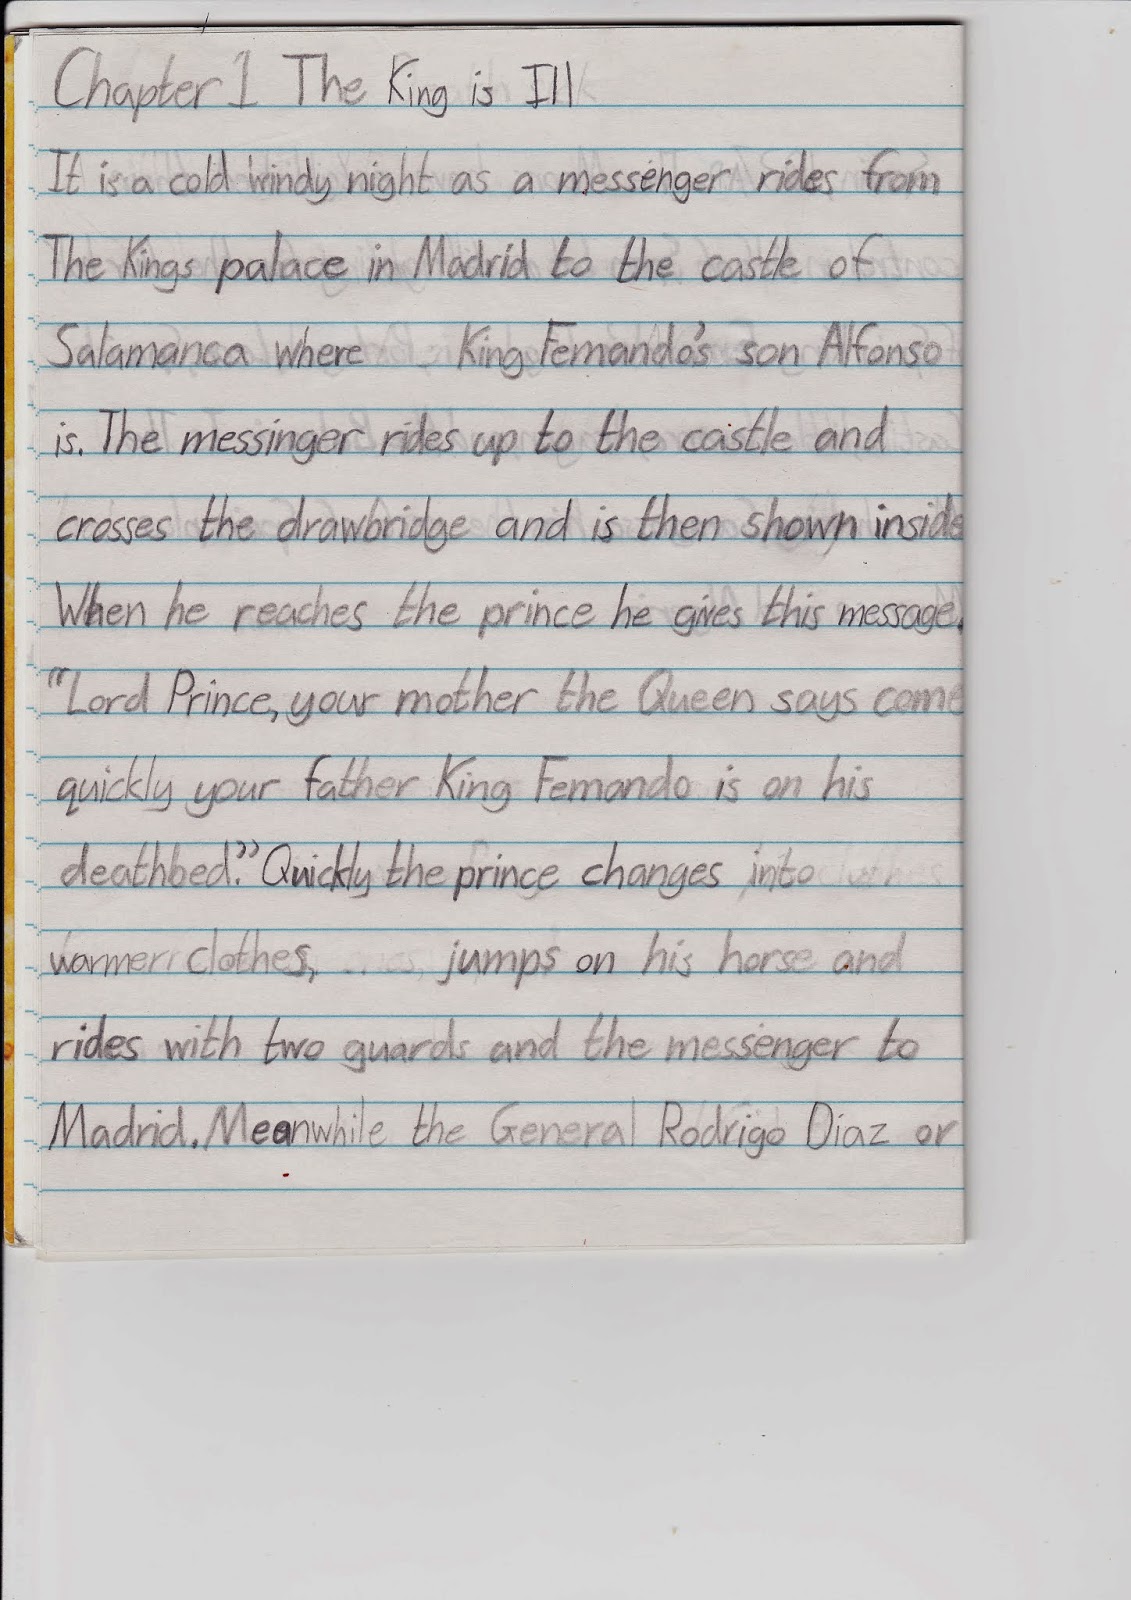 Chapter 1 The King is Ill
It is a cold windy night as a messenger rides from
The Kings palace in Madrid to the castle of
Salamanca where King Fernando's son Alfonso
is. The messinger rides up to the castle and
crosses the drawbridge and is then shown inside
When he reaches the prince he gives this message.
"Lord Prince, your mother the Queen says come
quickly your father King Fernando is on his
deathbed." Quickly the prince changes into
warmer clothes, jumps on his horse and
rides with two guards and the messenger to
Madrid. Meanwhile the General Rodrigo Diaz or